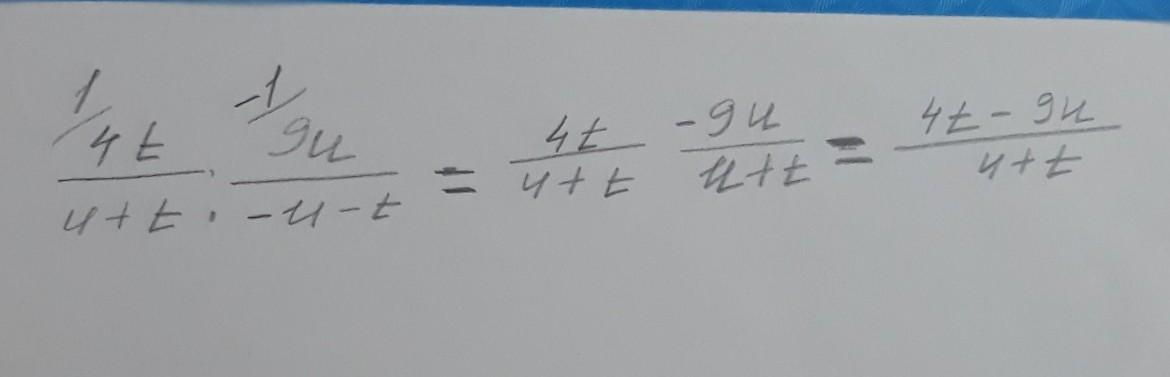 1/4t / u+t : -1/9u / -u-t = 4t / u+t -9u / u+t = 4t-9u / u+t